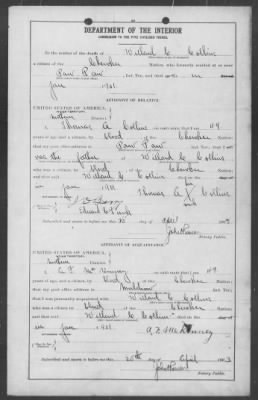 DEPARTMENT OF THE INTERIOR
COMMISSION TO THE FIVE CIVILIZED TRIBES.
In the matter of the death of Willard C Collins
a citizen of the Cherokee Nation, who formerly resided at or near
Paw Paw, Ind. Ter., and died on the in
Jan 1901
AFFIDAVIT OF RELATIVE.
UNITED STATES OF AMERICA,
INDIAN TERRITORY,
Northern District.
I Thomas A Collins on oath state that I am 49
years of age and a citizen by blood of the Cherokee Nation;
that my post office address is Paw Paw, Ind. Ter.; that I
was the father of Willard C Collins
who was a citizen by blood of the Cherokee Nation
Willard C. Collins died
in Jan 1901
Thomas A Collins
Subscribed and sworn to before me this April
Notary Public.
AFFIDAVIT OF ACQUAINTANCE.
UNITED STATES OF AMERICA,
INDIAN TERRITORY,
Northern District.
I A. F. McKinney on oath state that I am 49
years of age, and a citizen by blood of the Cherokee Nation;
that my post office address is Muldrow, Ind. Ter.;
that I was personally acquainted with Willard C Collins
who was a citizen by blood of the Cherokee Nation
Willard C Collins died
in Jan 1901
A. F. McKinney
Subscribed and sworn to before me this 20th day of April 1903
Notary Public.